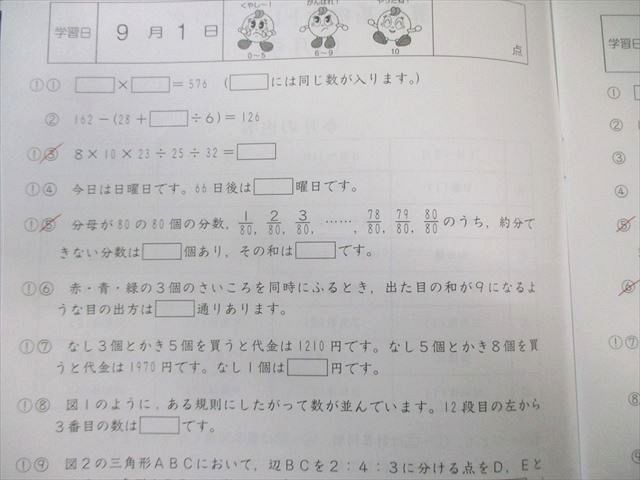 学習日 9月1日 くやしー! 0~5 がんばれ! 6~9 やったね! 10 点
①① □×□=576 (□には同じ数が入ります。)
② 162-(28+□÷6)=126
①③ 8×10×23÷25÷32=□
①④ 今日は日曜日です。66日後は□曜日です。
①⑤ 分母が80の80個の分数, 1/80, 2/80, 3/80, ……, 78/80, 79/80, 80/80 のうち, 約分で
きない分数は□個あり, その和は□です。
①⑥ 赤・青・緑の3個のさいころを同時にふるとき, 出た目の和が9になるよ
うな目の出方は□通りあります。
①⑦ なし3個とかき5個を買うと代金は1210円です。なし5個とかき8個を買
うと代金は1970円です。なし1個は□円です。
①⑧ 図1のように, ある規則にしたがって数が並んでいます。12段目の左から
3番目の数は□です。
①⑨ 図2の三角形ABCにおいて, 辺BCを2:4:3に分ける点をD, Eと
学習日
①
②
③
④
⑤
⑥
①⑦
⑧